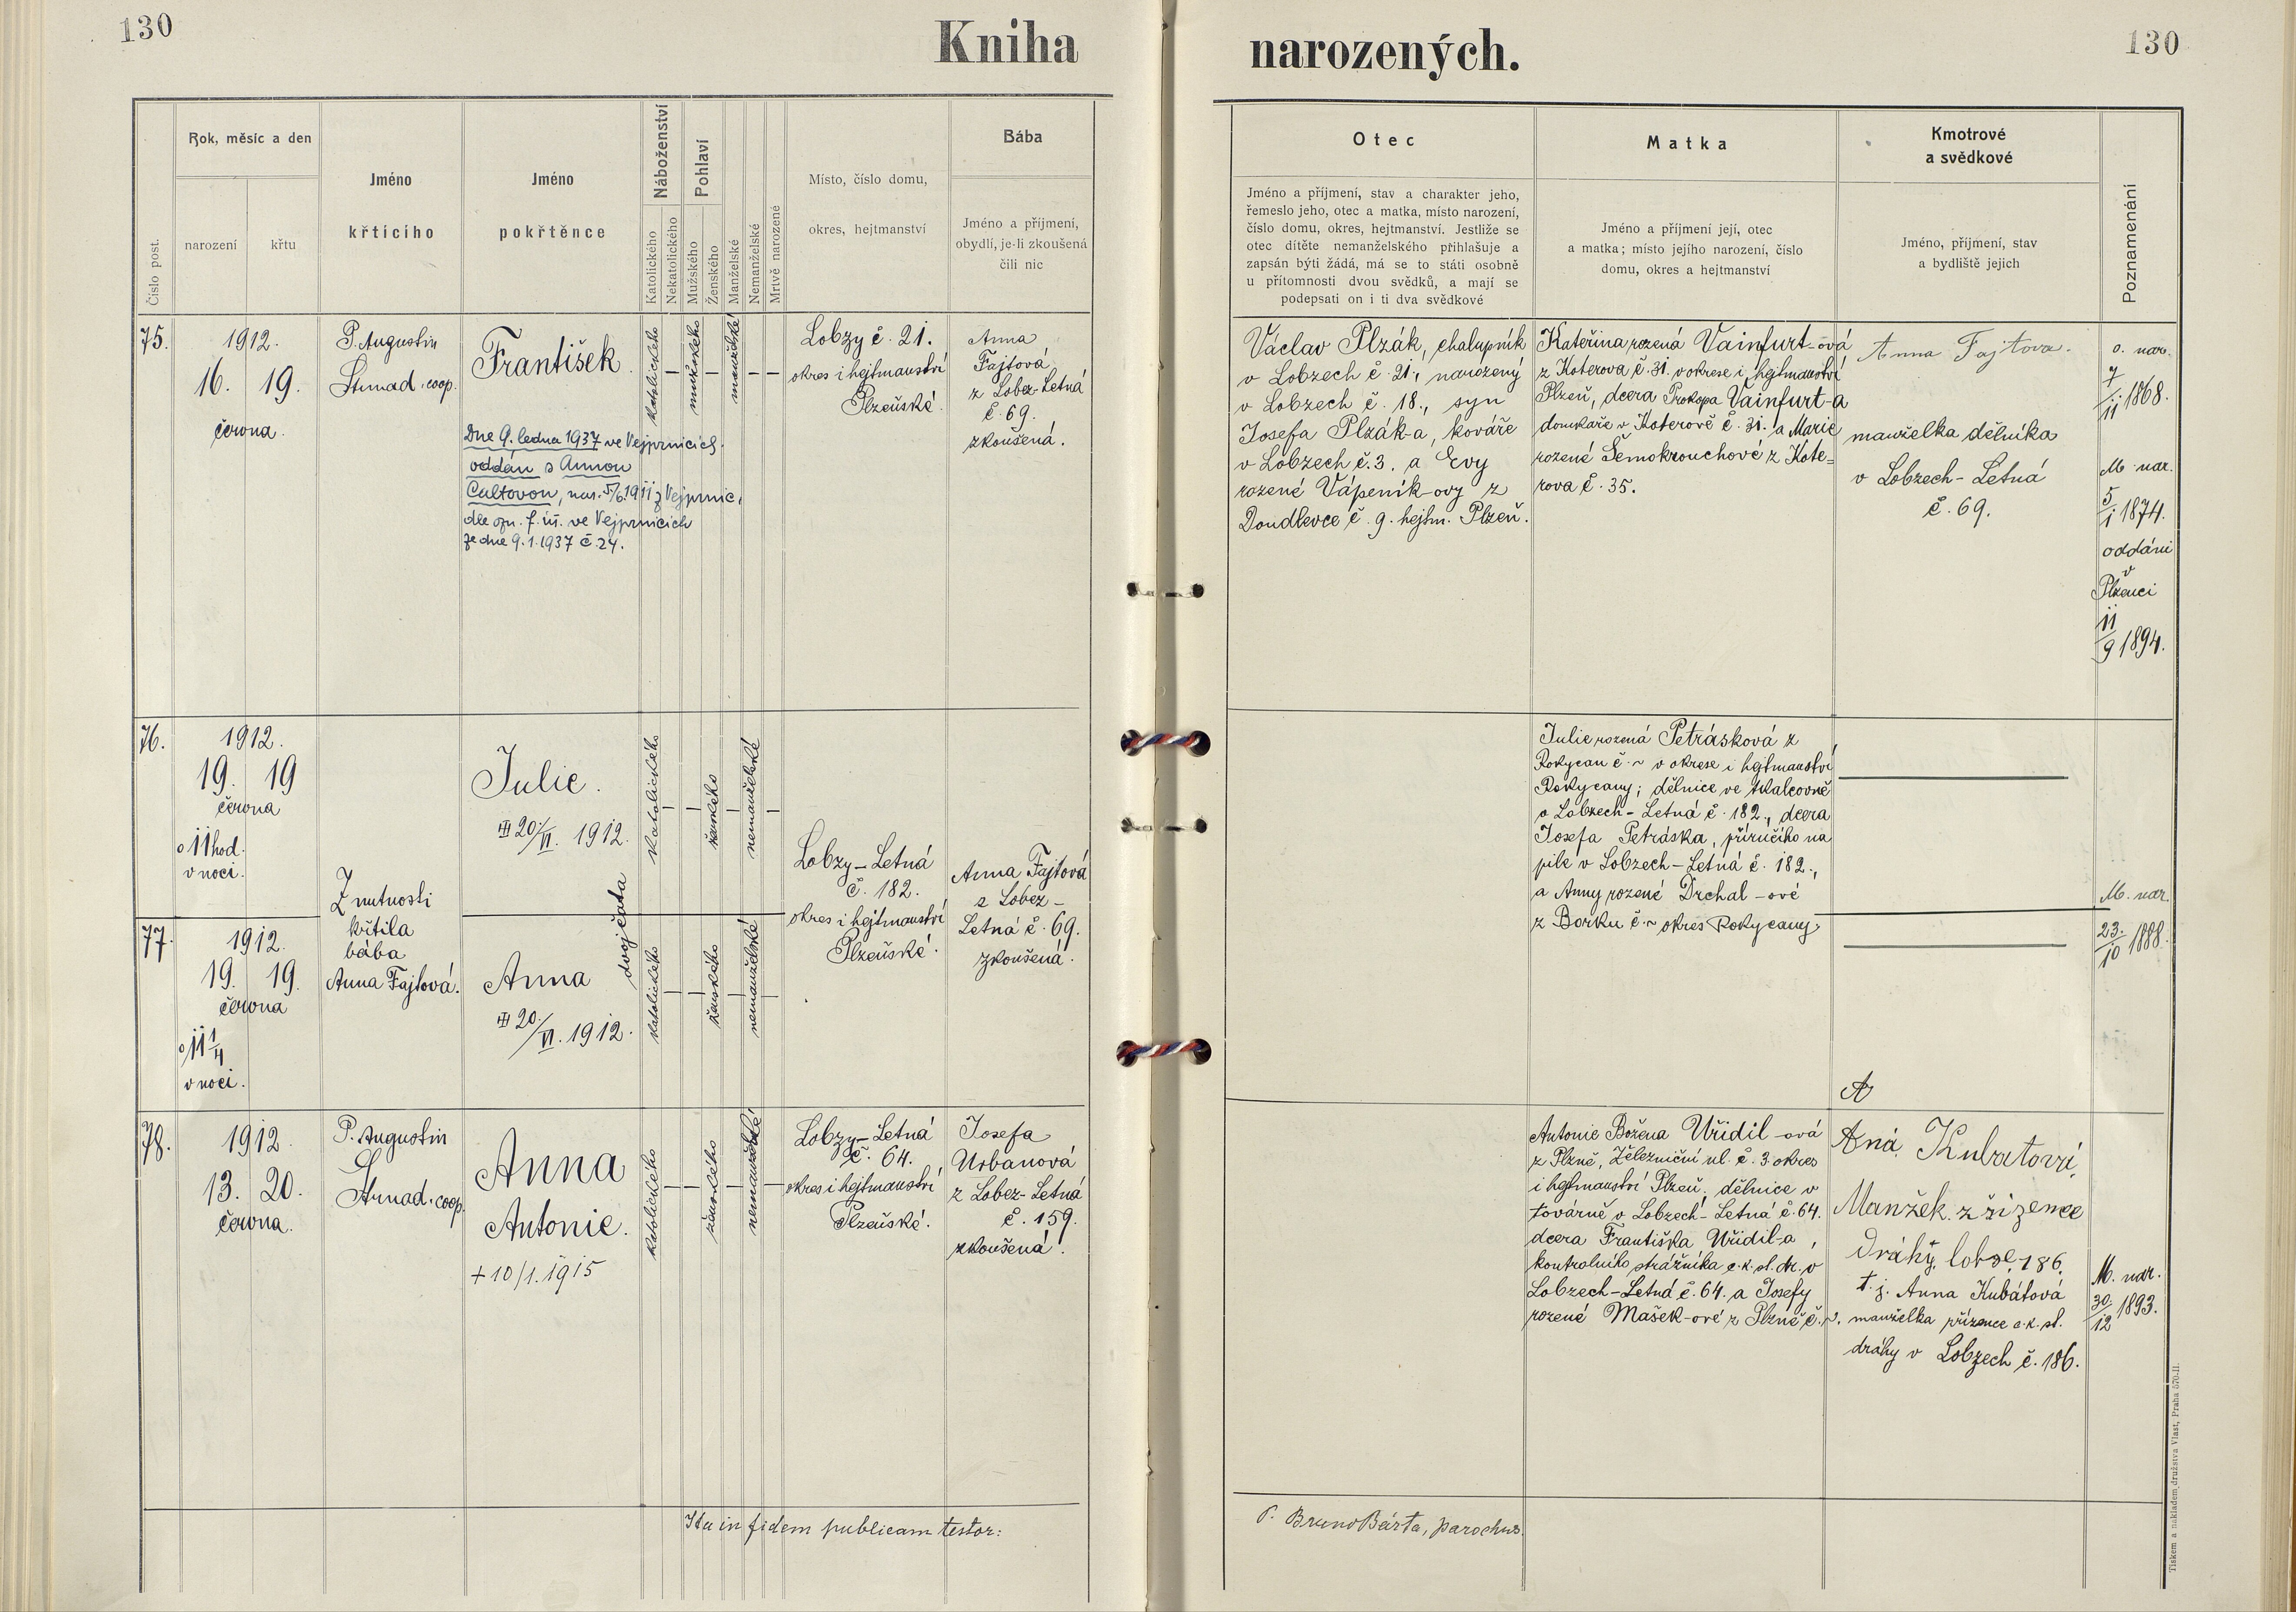 130
Kniha
narozených.
130
Číslo post.
Rok, měsíc a den
narození
křtu
Jméno
křtícího
Jméno
pokřtěnce
Náboženství
Katolického
Nekatolického
Pohlaví
Mužského
Ženského
Manželské
Nemanželské
Mrtvě narozené
Místo, číslo domu,
okres, hejtmanství
Bába
Jméno a příjmení,
obydlí, je-li zkoušená
čili nic
Otec
Jméno a příjmení, stav a charakter jeho,
řemeslo jeho, otec a matka, místo narození,
číslo domu, okres, hejtmanství. Jestliže se
otec dítěte nemanželského přihlašuje a
zapsán býti žádá, má se to státi osobně
u přítomnosti dvou svědků, a mají se
podepsati on i ti dva svědkové
Matka
Jméno a příjmení její, otec
a matka; místo jejího narození, číslo
domu, okres a hejtmanství
Kmotrové
a svědkové
Jméno, příjmení, stav
a bydliště jejich
Poznamenání
75.
1912.
16. 19.
června.
P. Augustin
Strnad, coop.
František.
Dne 9. ledna 1937 ve Vejprnicích
oddán s Annou
Cultovou, nar. 5/6 1911 z Vejprnic,
dle ozn. f. úř. ve Vejprnicích
ze dne 9.1.1937 č. 24.
katolického
mužského
manželské
Lobzy č. 21.
okres i hejtmanství
Plzeňské.
Anna
Fajtová
z Lobez-Letná
č. 69.
zkoušená.
Václav Plzák, chalupník
v Lobzech č. 21., narozený
v Lobzech č. 18., syn
Josefa Plzák-a, kováře
v Lobzech č. 3. a Evy
rozené Vápeník-ovy z
Doudlevce č. 9. hejtm. Plzeň.
Kateřina rozená Vainfurt-ová
z Koterova č. 31. v okrese i hejtmanství
Plzeň, dcera Prokopa Vainfurt-a
domkáře v Koterově č. 31. a Marie
rozené Šemokrouchové z Kote=
rova č. 35.
Anna Fajtova.
manželka dělníka
v Lobzech-Letná
č. 69.
o. nar.
7/11 1868.
M. nar.
5/1 1874.
oddáni
v
Plzenci
11/9 1894.
76.
1912.
19. 19
června
o 11 hod.
v noci.
Z nutnosti
křtila
bába
Anna Fajtová.
Julie.
20/VI. 1912.
katolického
ženského
nemanželské
dvojčata
Lobzy-Letná
č. 182.
okres i hejtmanství
Plzeňské.
Anna Fajtová
z Lobez-
Letná č. 69.
zkoušená.
Julie rozená Petrásková z
Rokycan č. ~ v okrese i hejtmanství
Rokycany; dělnice ve tkalcovně
v Lobzech-Letná č. 182., dcera
Josefa Petráska, příručího na
pile v Lobzech-Letná č. 182.,
a Anny rozené Drchal-ové
z Borku č. ~ okres Rokycany.
M. nar.
23./10 1888.
77.
1912.
19. 19.
června
o 11 1/4
v noci.
Anna
20/VI. 1912.
katolického
ženského
nemanželské
78.
1912.
13. 20.
června.
P. Augustin
Strnad, coop.
Anna
Antonie.
+ 10/1. 1915
katolického
ženského
nemanželské
Lobzy-Letná
č. 64.
okres i hejtmanství
Plzeňské.
Josefa
Urbanová
z Lobez-Letná
č. 159.
zkoušená.
Antonie Božena Uřidil-ová
z Plzně, Železniční ul. č. 3 okres
i hejtmanství Plzeň, dělnice v
továrně v Lobzech-Letná č. 64.
dcera Františka Uřidil-a,
kontrolního strážníka c. k. st. dr. v
Lobzech-Letná č. 64. a Josefy
rozené Mašek-ové z Plzně č. ~.
A
Aná Kubatová
Manžek. z řizence
dráhy. lobze. 186.
t. j. Anna Kubátová
manželka zřízence c. k. st.
dráhy v Lobzech č. 186.
M. nar.
30./12 1893.
Ita in fidem publicam testor:
P. Bruno Bárta, parochus.
Tiskem a nákladem družstva Vlast, Praha 570-II.